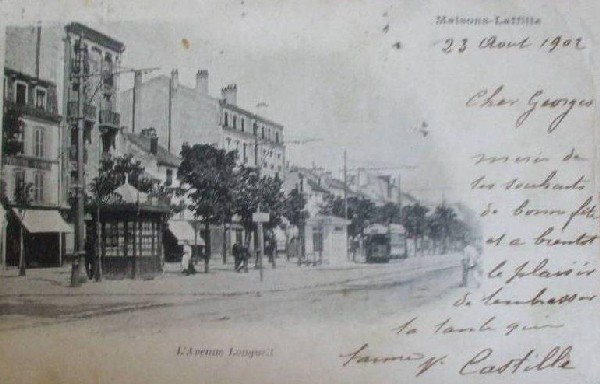 Maisons-Laffitte
23 Aout 1902
Cher Georges
merci de
tes souhaits
de bonne fête
et a bientot
le plaisir
de t'embrasser
ta tante qui
t'aime
Castille
L'Avenue Longueil